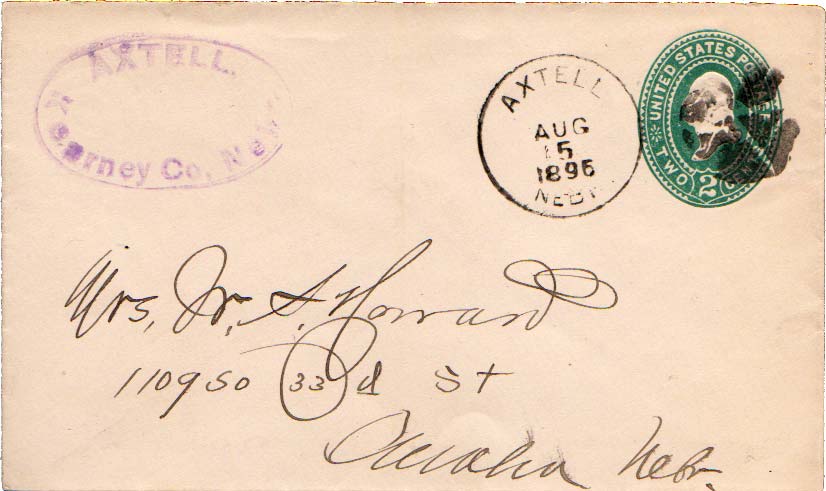 AXTELL.
Kearney Co, Neb.
AXTELL
AUG
15
1896
NEBR
UNITED STATES POSTAGE
TWO 2 CENTS
Mrs, Jr, S, Howard
1109 So 33d St
Omaha Nebr.